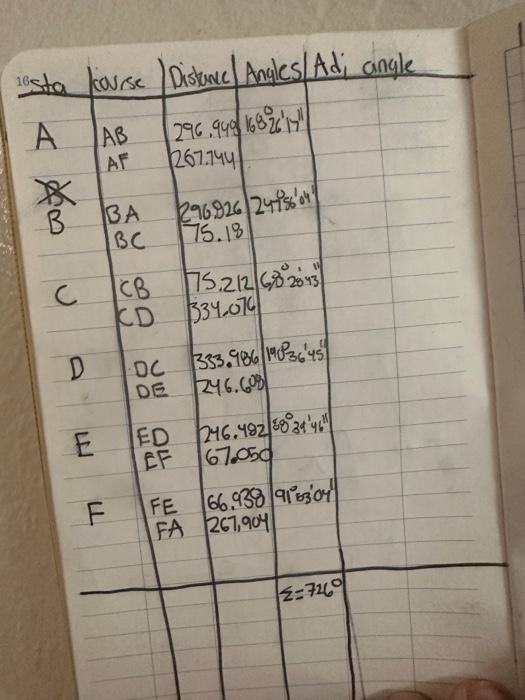 16 Sta course Distance Angles Adj angle
A AB 296.949 168°26'17"
AF 267.744
B BA 296.826
BC 75.18
C CB 75.212 68°28'43"
CD 334.076
D DC 333.986 140°36'45"
DE 246.608
E ED 246.482
EF 67.050
F FE 66.938 91°53'04"
FA 267,904
Σ=726°